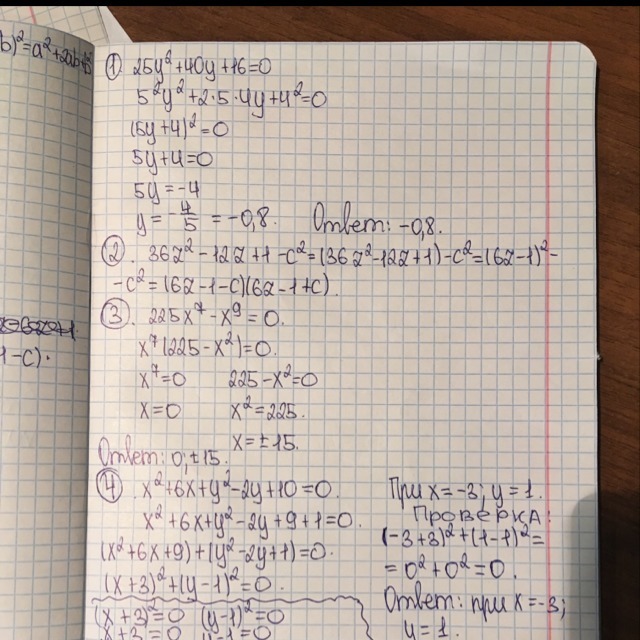 b)²=a²+2ab+b²
1-c).
① 25y²+40y+16=0
5²y²+2·5·4y+4²=0
(5y+4)²=0
5y+4=0
5y=-4
y=-4/5=-0,8. Ответ: -0,8.
② 36z²-12z+1-c²=(36z²-12z+1)-c²=(6z-1)²-
-c²=(6z-1-c)(6z-1+c).
③ 225x⁷-x⁹=0.
x⁷(225-x²)=0.
x⁷=0 225-x²=0
x=0 x²=225.
x=±15.
Ответ: 0; ±15.
④ x²+6x+y²-2y+10=0.
x²+6x+y²-2y+9+1=0.
(x²+6x+9)+(y²-2y+1)=0.
(x+3)²+(y-1)²=0.
(x+3)²=0 (y-1)²=0
x+3=0 y-1=0
При x=-3; y=1.
Проверка:
(-3+3)²+(1-1)²=
=0²+0²=0.
Ответ: при x=-3;
y=1.